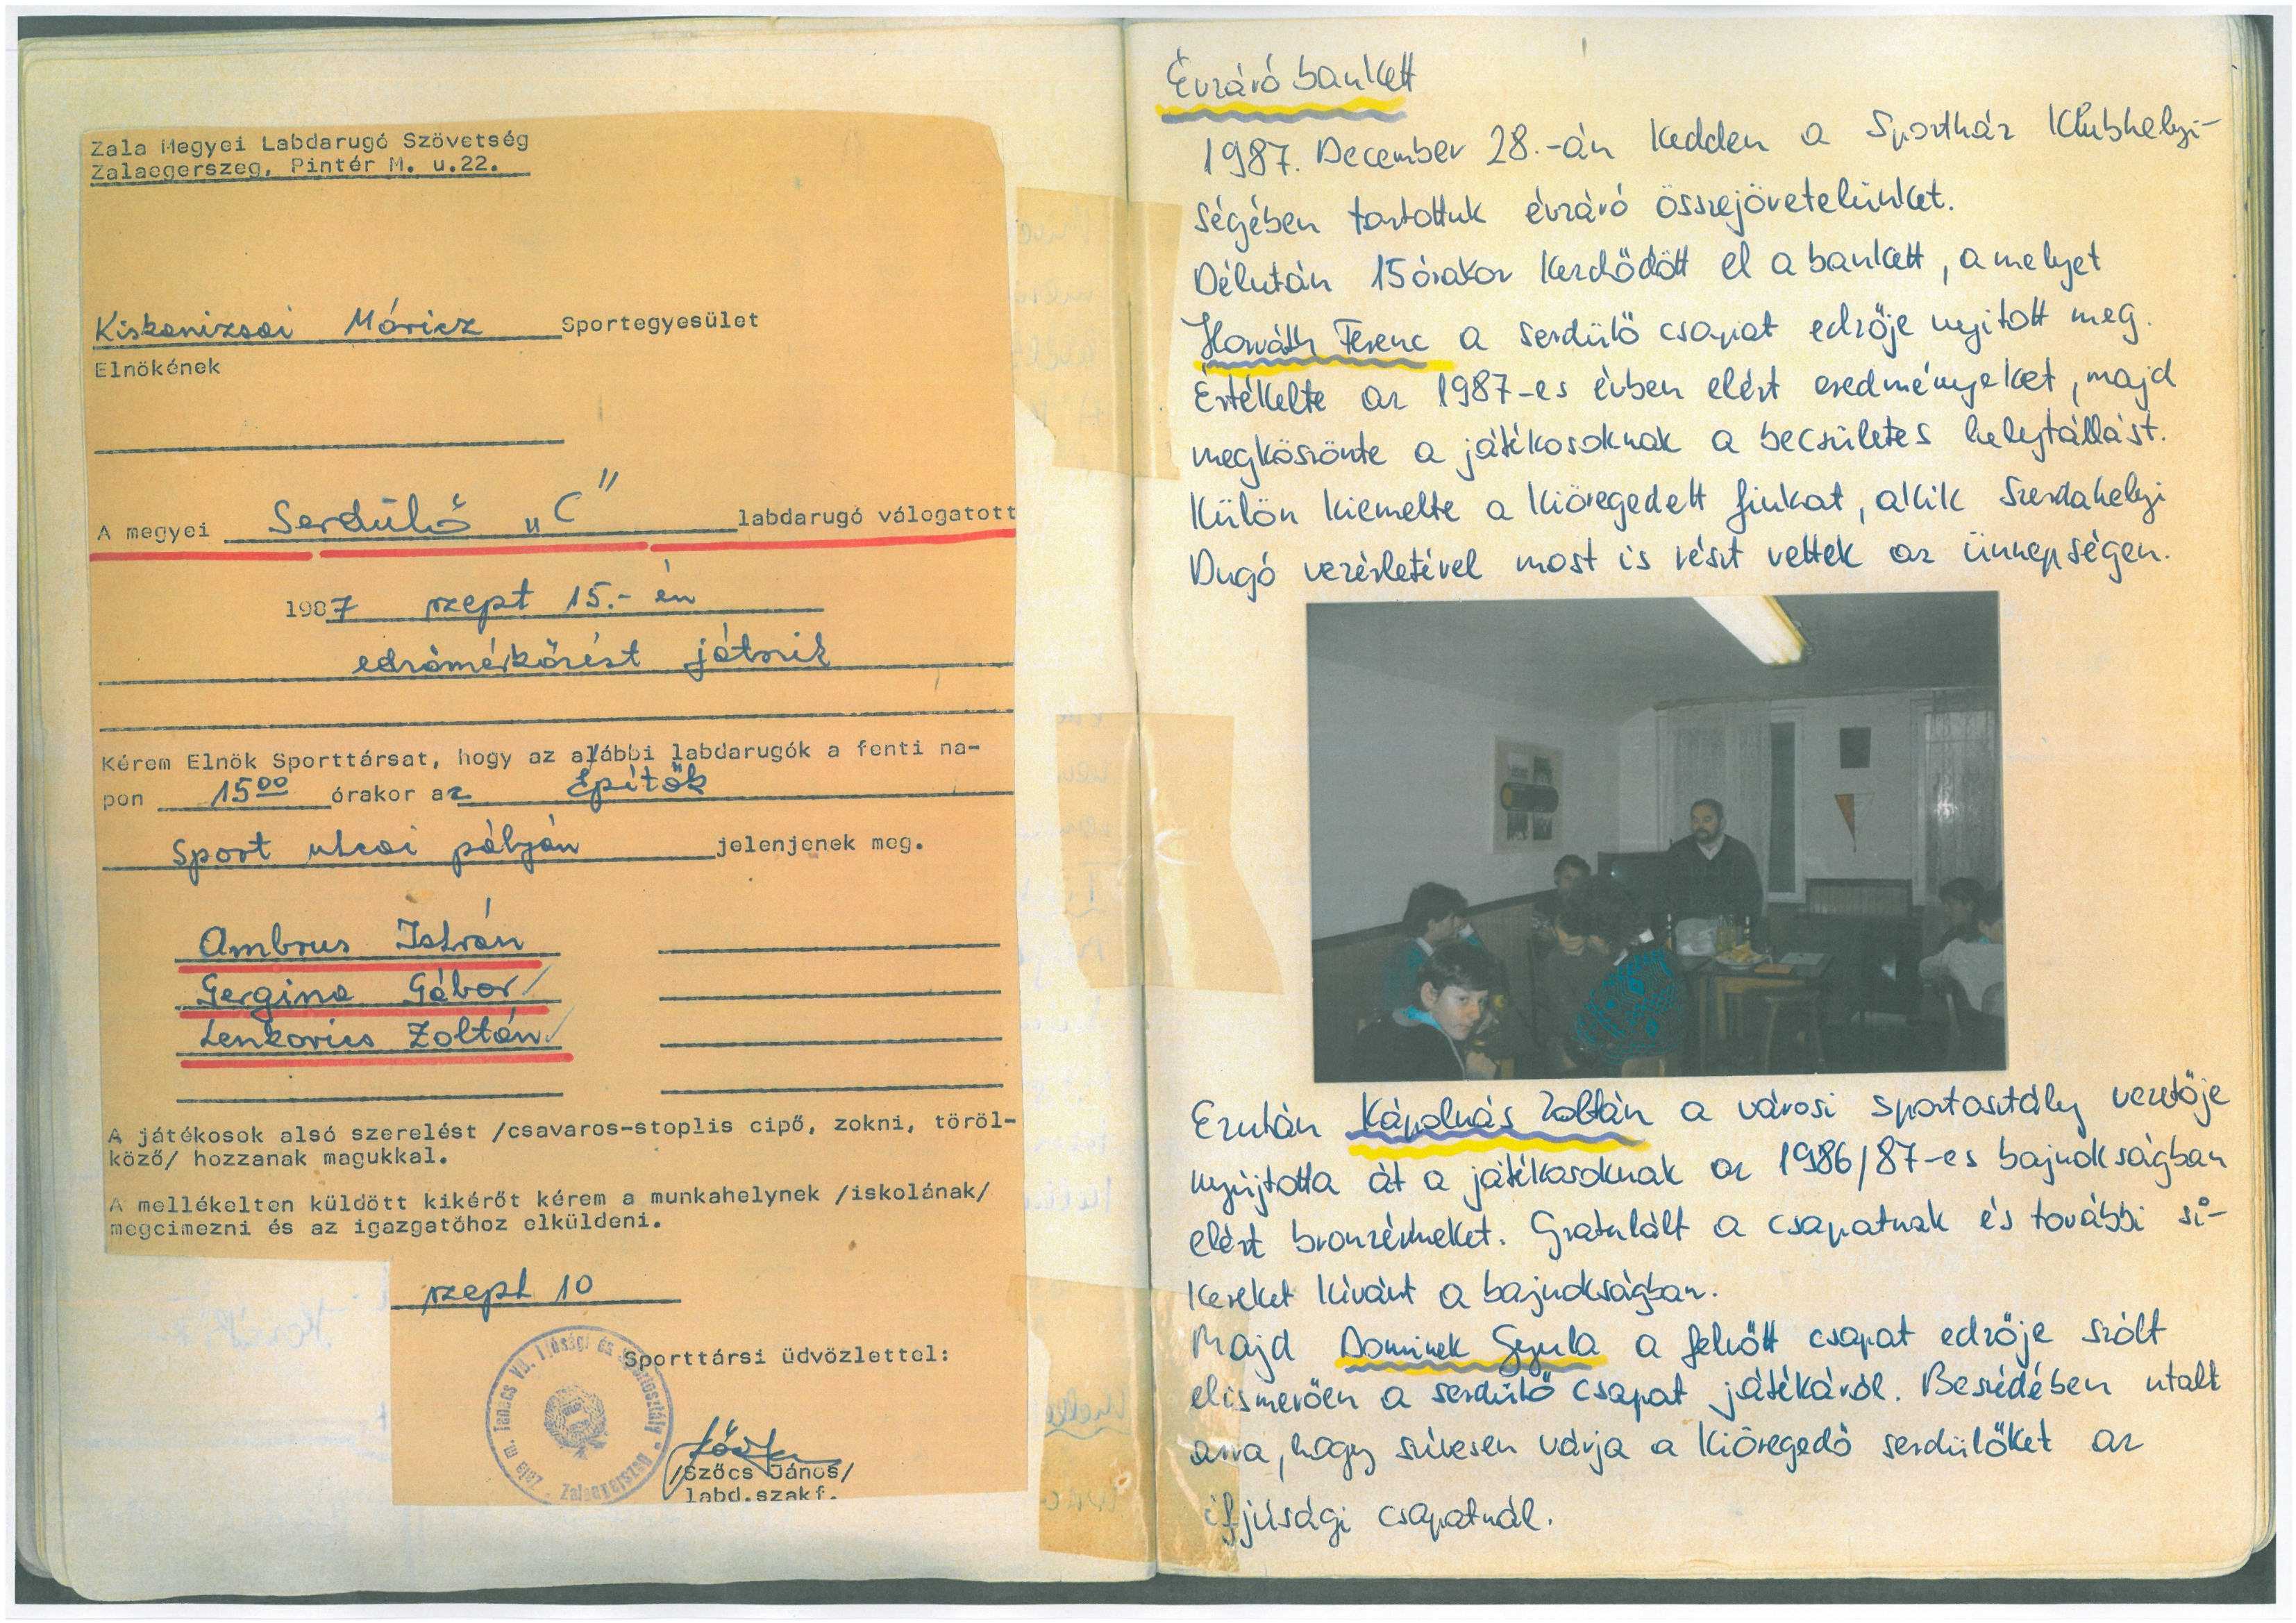 Zala Megyei Labdarugó Szövetség
Zalaegerszeg, Pintér M. u.22.
Kiskanizsai Móricz Sportegyesület
Elnökének
A megyei Serdülő "C" labdarugó válogatott
1987 szept 15.-én
edzőmérkőzést játszik
Kérem Elnök Sporttársat, hogy az alábbi labdarugók a fenti na-
pon 15⁰⁰ órakor az Építők
Sport utcai pályán jelenjenek meg.
Ambrus István
Gergina Gábor
Lenkovics Zoltán
A játékosok alsó szerelést /csavaros-stoplis cipő, zokni, töröl-
köző/ hozzanak magukkal.
A mellékelten küldött kikérőt kérem a munkahelynek /iskolának/
megcimezni és az igazgatóhoz elküldeni.
szept 10
Sporttársi üdvözlettel:
Zala m. Tanács VB. Ifjúsági és Sportosztály Zalaegerszeg
/Szőcs János/
labd.szakf.
Évzáró bankett
1987. December 28.-án kedden a Sportház Klubhelyi-
ségében tartottuk évzáró összejövetelünket.
Délután 15 órakor kezdődött el a bankett, amelyet
Horváth Ferenc a serdülő csapat edzője nyitott meg.
Értékelte az 1987-es évben elért eredményeket, majd
megköszönte a játékosoknak a becsületes helytállást.
Külön kiemelte a kiöregedett fiukat, akik Szerdahelyi
Dugó vezérletével most is részt vettek az ünnepségen.
Ezután Kápolnás Zoltán a városi sportosztály vezetője
nyújtotta át a játékosoknak az 1986/87-es bajnokságban
elért bronzérmeket. Gratulált a csapatnak és további si-
kereket kívánt a bajnokságban.
Majd Dominek Gyula a felnőtt csapat edzője szólt
elismerően a serdülő csapat játékáról. Beszédében utalt
arra, hogy szívesen várja a kiöregedő serdülőket az
ifjúsági csapatnál.